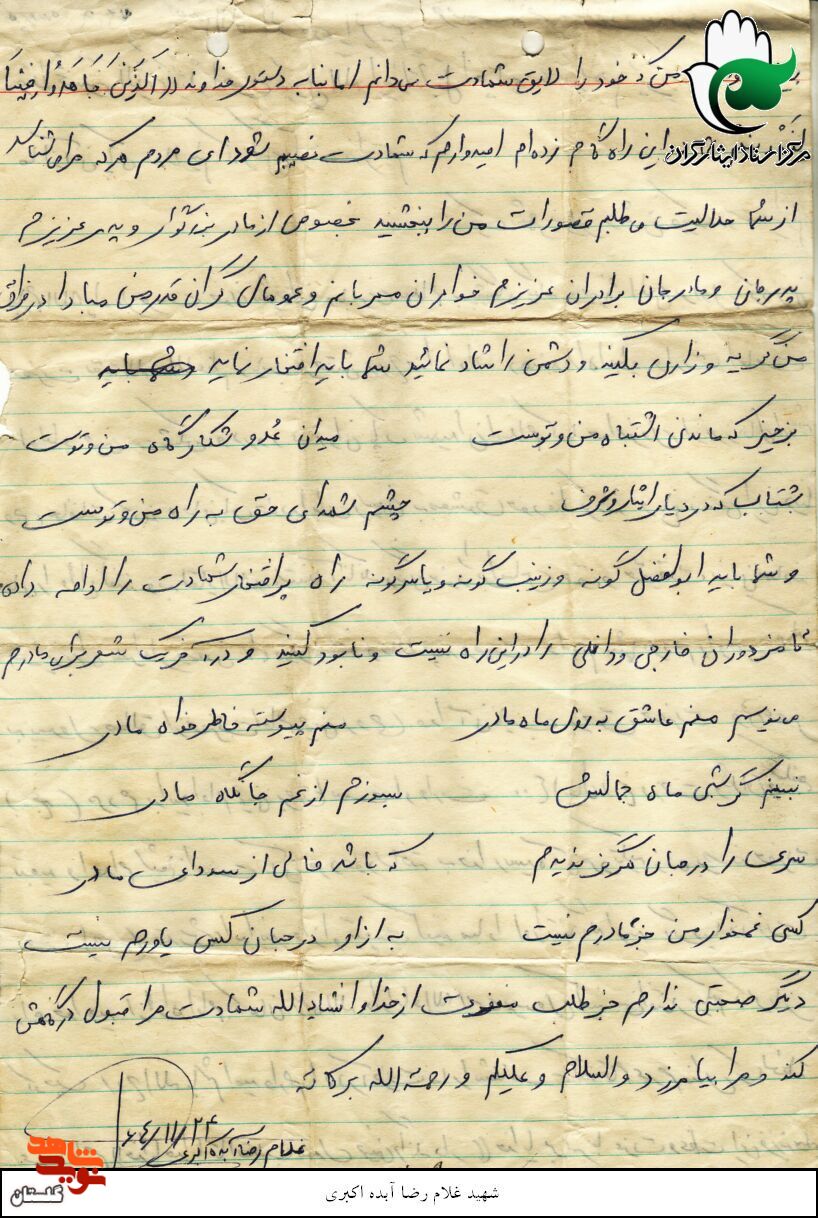 من که خود را لایق شهادت نمی‌دانم اما بنا به دستور خداوند ((الذین جاهدوا فینا
این راه گام زده‌ام امیدوارم که شهادت نصیبم شود ای مردم هر که مرا می‌شناسد
از شما حلالیت می‌طلبم قصورات من را ببخشید بخصوص از مادر بزرگوار و پدر عزیزم
پدرجان و مادرجان برادران عزیزم خواهران مهربانم و عموهای گران قدر من مبادا در فراق
من گریه و زاری بکنید و دشمن را شاد نمائید شما باید افتخار نماید
برخیز که ماندن اشتباه من و توست میدان عدو شکارگاه من و توست
بشتاب که در دیار ایثار و شرف چشم شهدای حق به راه من و توست
و شما باید ابوالفضل گونه و زینب گونه و یاسر گونه راه پر افتخار شهادت را ادامه داده
تا مزدوران خارجی و داخلی را در این راه نیست و نابود کنید و در آخر یک شعر برای مادرم
می‌نویسم منم عاشق به روی ماه مادر منم پیوسته خاطر خواه مادر
نبینم گر شبی ماه جمالش بسوزم از غم جانگاه مادر
سری را در جهان هرگز ندیدم که باشد خالی از سودای مادر
کسی غمخوار من جز مادرم نیست به از او در جهان کس یاورم نیست
دیگر صحبتی ندارم جز طلب مغفرت از خدا و انشاءالله شهادت مرا قبول درگهش
کند و مرا بیامرزد والسلام و علیکم و رحمة الله برکاته
۶۴/۱۱/۲۴
غلام رضا آبده اکبری
مرکز اسناد ایثارگران
نوید شاهد
گلستان
شهید غلام رضا آبده اکبری